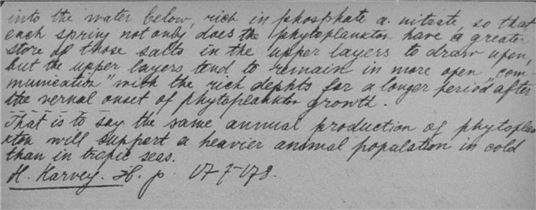 into the water below, rich in phosphate a. nitrate, so that
each spring not only does the phytoplancton have a greater
store of those salts in the upper layers to draw upon,
but the upper layers tend to remain in more open „com-
munication" with the rich dephts for a longer period after
the vernal onset of phytoplankton growth.
That is to say the same annual production of phytoplan-
kton will support a heavier animal population in cold
than in tropic seas.
H. Harvey. H. p. 177-178.